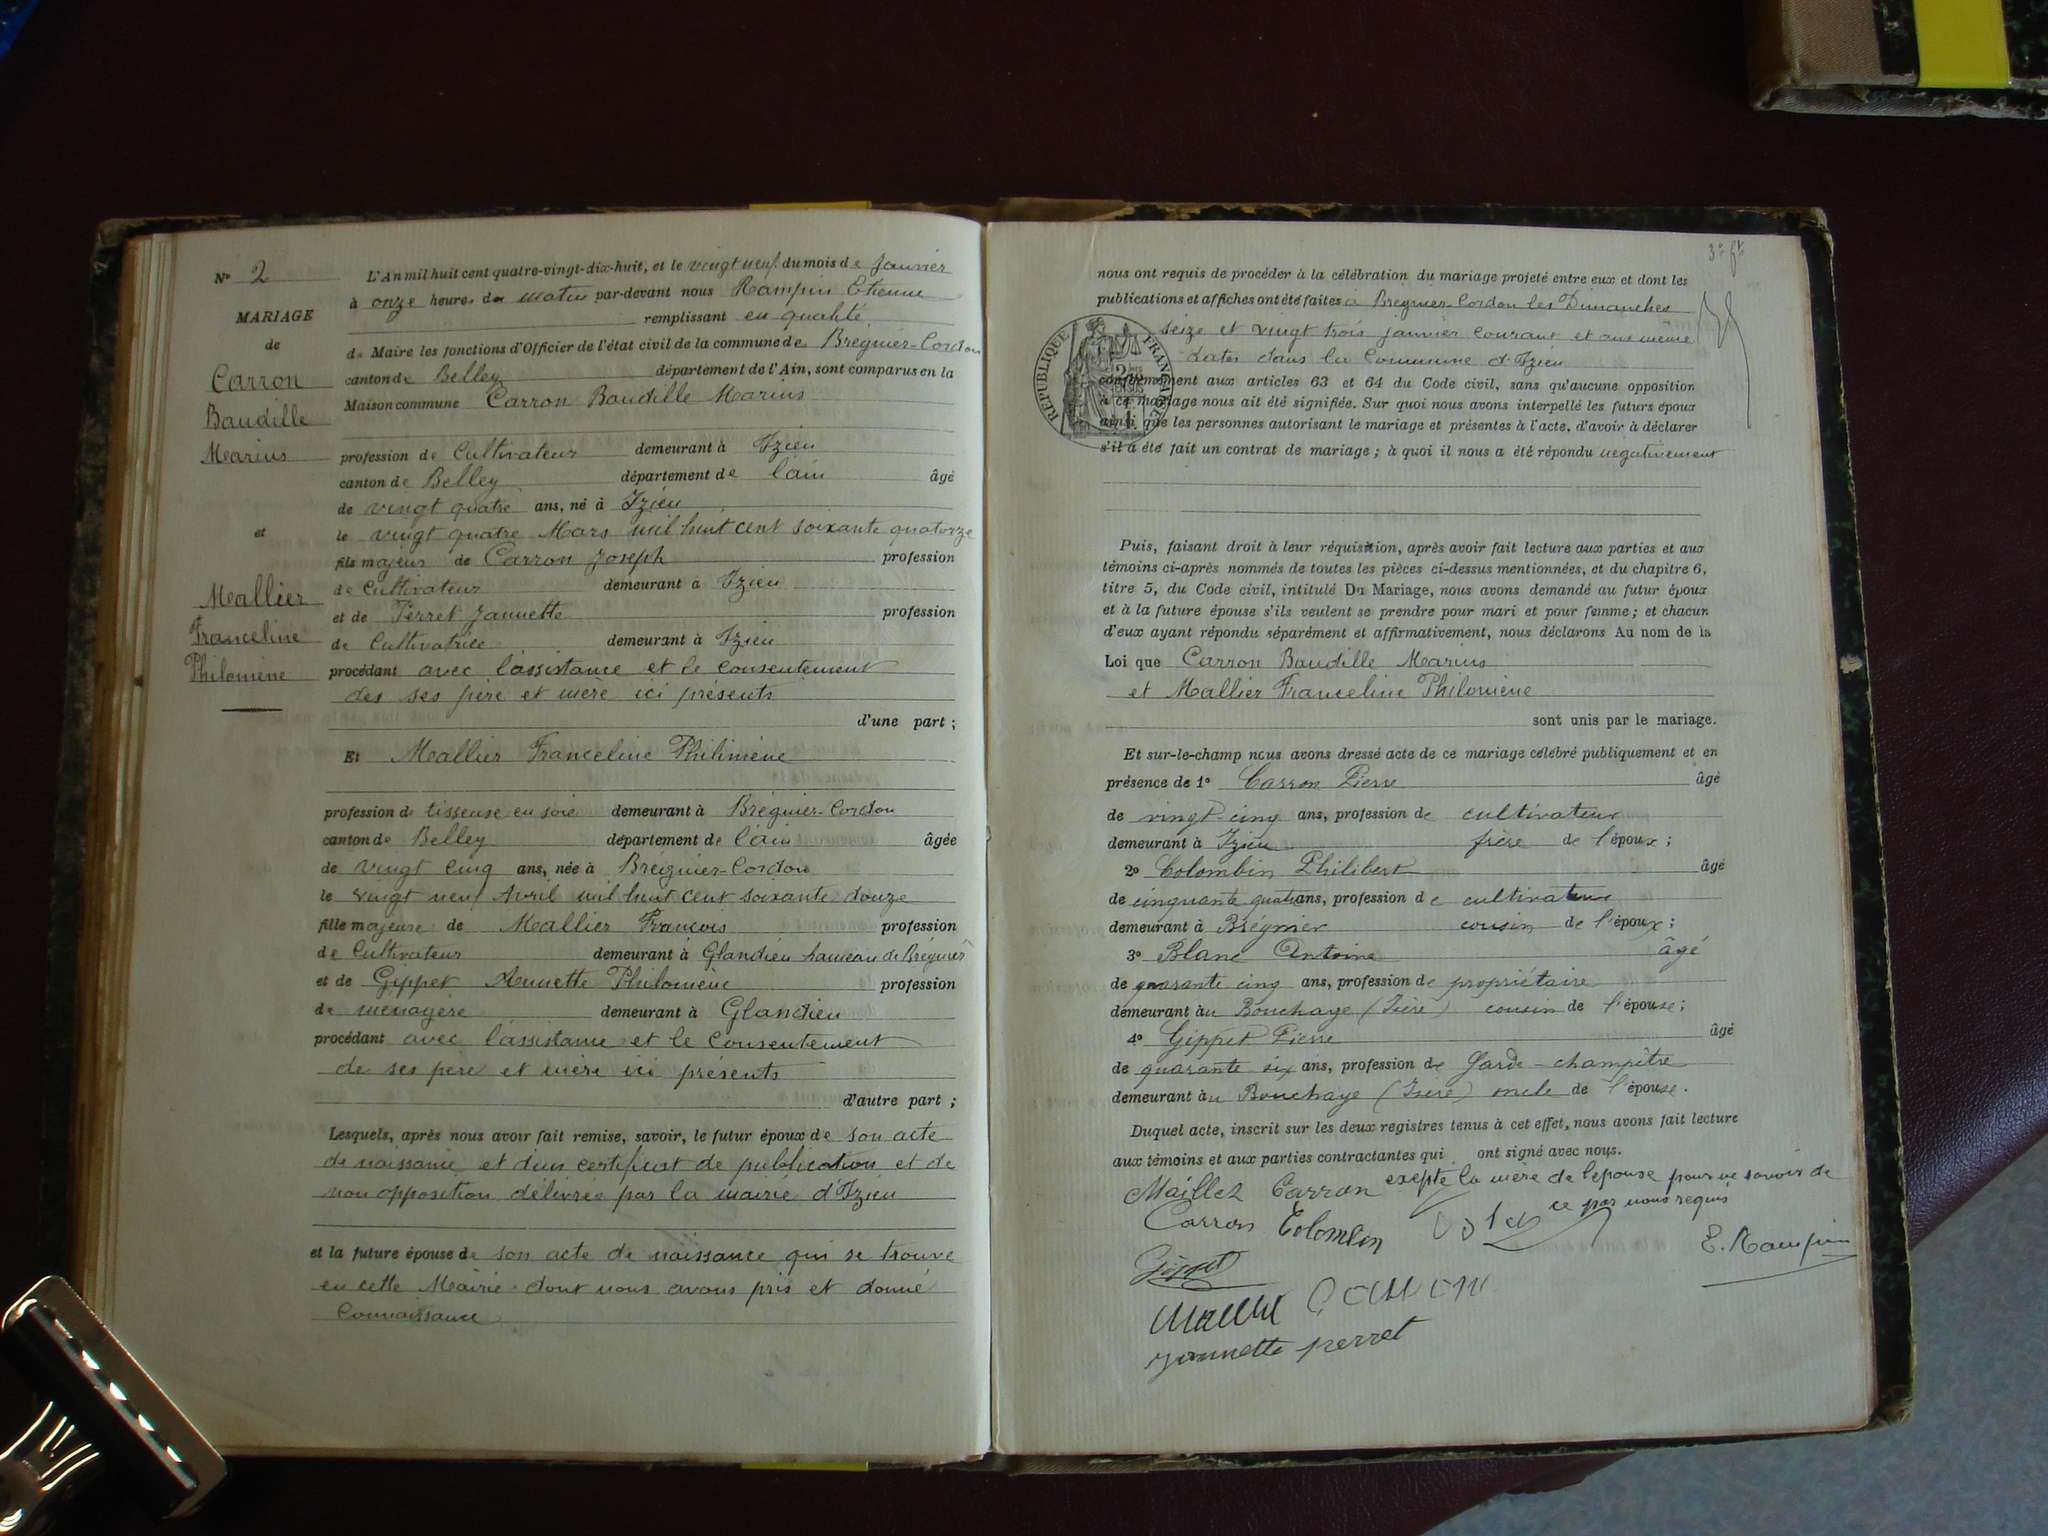 N° 2
MARIAGE
de
Carron
Baudille
Marius
et
Mallier
Franceline
Philomène
L'An mil huit cent quatre-vingt-dix-huit, et le vingt neuf du mois de Janvier
à onze heures du matin par-devant nous Rampin Etienne
remplissant en qualité
de Maire les fonctions d'Officier de l'état civil de la commune de Brégnier-Cordon
canton de Belley département de l'Ain, sont comparus en la
Maison commune Carron Baudille Marius
profession de Cultivateur demeurant à Izieu
canton de Belley département de l'ain âgé
de vingt quatre ans, né à Izieu
le vingt quatre Mars mil huit cent soixante quatorze
fils majeur de Carron Joseph profession
de Cultivateur demeurant à Izieu
et de Perret Jannette profession
de Cultivatrice demeurant à Izieu
procédant avec l'assistance et le consentement
des ses père et mère ici présents
d'une part ;
Et Mallier Franceline Philiméne
profession de tisseuse en soie demeurant à Brégnier-Cordon
canton de Belley département de l'ain âgée
de vingt cinq ans, née à Brégnier-Cordon
le vingt neuf Avril mil huit cent soixante douze
fille majeure de Mallier François profession
de Cultivateur demeurant à Glandieu hameau de Brégnier
et de Gippet Annette Philomène profession
de ménagère demeurant à Glandieu
procédant avec l'assistance et le Consentement
de ses père et mère ici présents
d'autre part ;
Lesquels, après nous avoir fait remise, savoir, le futur époux de son acte
de naissance et d'un certificat de publication et de
non opposition délivrée par la mairie d'Izieu
et la future épouse de son acte de naissance qui se trouve
en cette Mairie dont nous avons pris et donné
Connaissance
nous ont requis de procéder à la célébration du mariage projeté entre eux et dont les
publications et affiches ont été faites à Brégnier-Cordon les Dimanches
seize et vingt trois janvier courant et aux même
dates dans la Commune d'Izieu
RÉPUBLIQUE FRANÇAISE
conformément aux articles 63 et 64 du Code civil, sans qu'aucune opposition
à ce mariage nous ait été signifiée. Sur quoi nous avons interpellé les futurs époux
ainsi que les personnes autorisant le mariage et présentes à l'acte, d'avoir à déclarer
s'il a été fait un contrat de mariage ; à quoi il nous a été répondu negativement
Puis, faisant droit à leur réquisition, après avoir fait lecture aux parties et aux
témoins ci-après nommés de toutes les pièces ci-dessus mentionnées, et du chapitre 6,
titre 5, du Code civil, intitulé Du Mariage, nous avons demandé au futur époux
et à la future épouse s'ils veulent se prendre pour mari et pour femme ; et chacun
d'eux ayant répondu séparément et affirmativement, nous déclarons Au nom de la
Loi que Carron Baudille Marius
et Mallier Franceline Philomène
sont unis par le mariage.
Et sur-le-champ nous avons dressé acte de ce mariage célébré publiquement et en
présence de 1° Carron Pierre âgé
de vingt-cinq ans, profession de cultivateur
demeurant à Izieu frère de l'époux ;
2° Colombin Philibert âgé
de cinquante quatre ans, profession de cultivateur
demeurant à Brégnier cousin de l'époux ;
3° Blanc Antoine âgé
de quarante cinq ans, profession de propriétaire
demeurant au Bouchage (Isère) cousin de l'épouse ;
4° Gippet Pierre âgé
de quarante six ans, profession de Garde-champêtre
demeurant au Bouchage (Isère) oncle de l'épouse.
Duquel acte, inscrit sur les deux registres tenus à cet effet, nous avons fait lecture
aux témoins et aux parties contractantes qui ont signé avec nous.
exepté la mère de l'epouse pour ne savoir de
ce par nous requis
Maillez Carron
Carron Colombin
E. Rampin
Gippet
Carron
Jannette perret